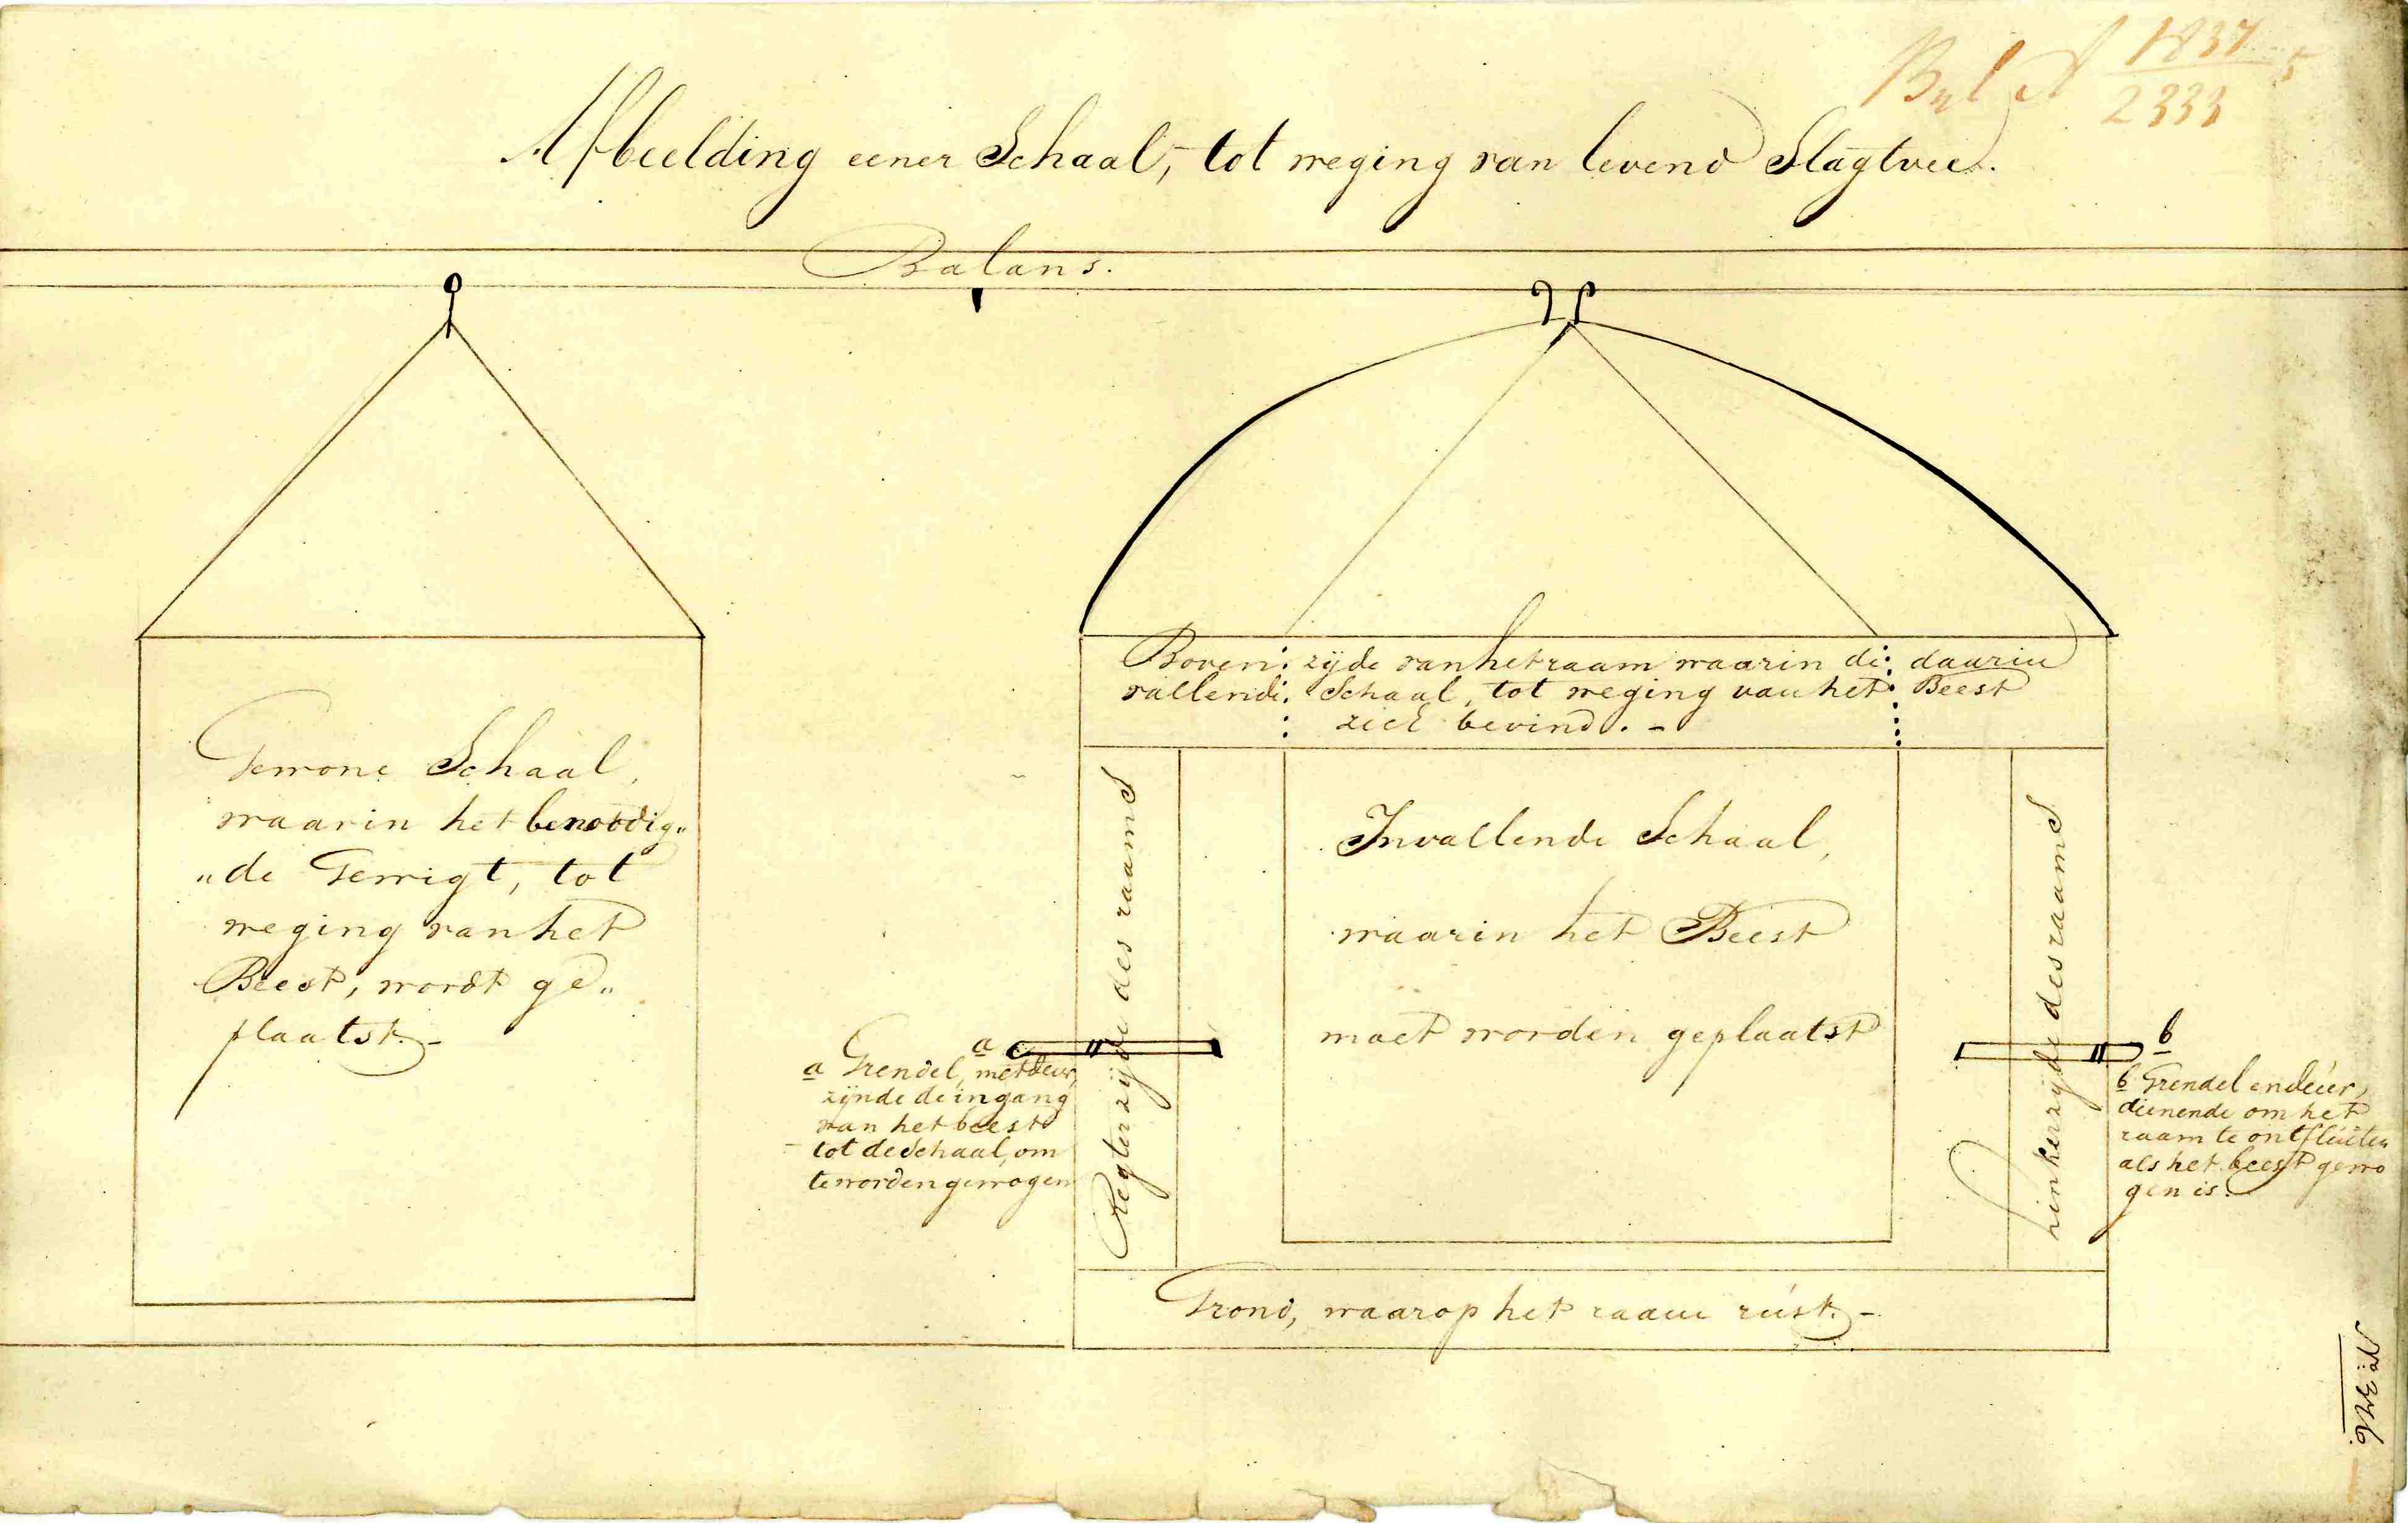 Byl A 1837
2333 5
Afbeelding eener Schaal, tot weging van levend Slagtvee.
Balans.
Gewone Schaal,
waarin het benoodig„
„de Gewigt, tot
weging van het
Beest, wordt ge„
plaatst.-
a
a Grendel, met deur,
zijnde de ingang
van het beest
tot de Schaal, om
te worden gewogen
Boven: zijde van het raam waarin de: daarin
vallende: Schaal, tot weging van het: Beest
zich bevind. -
Regterzijde des raams
Invallende Schaal,
waarin het Beest
moet worden geplaatst
Linkerzijde des raams
b
b Grendel en deur,
dienende om het
raam te ontsluiten
als het beest gewo
gen is.
Grond, waarop het raam rust. -